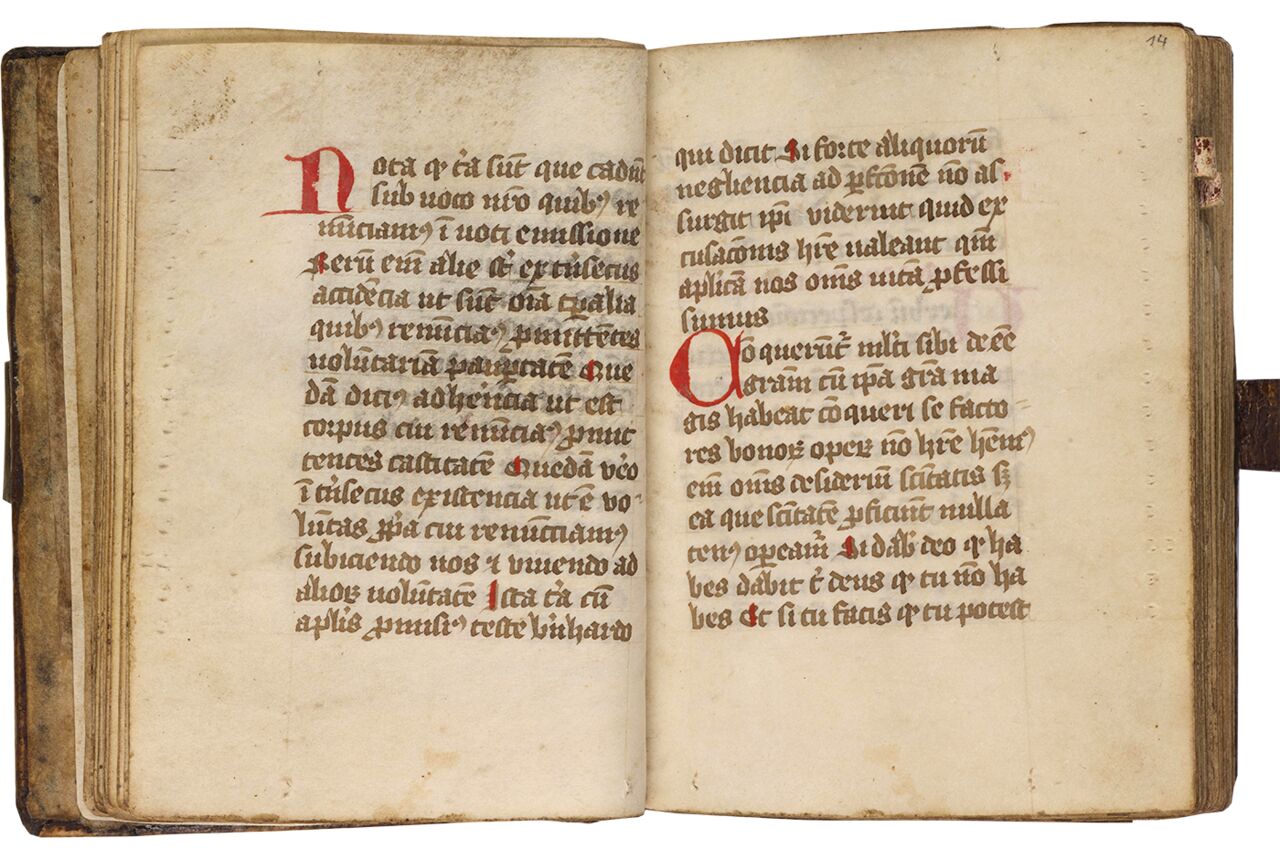 Nota qꝫ t̄a sūt que cadūt
sub uoto nr̄o quibꝰ re
nūciamꝰ ī uoti emissione
Rerū em̄ alie st̄ extīsecus
accidēcia ut sūt oīa tp̄alia
quibꝰ renūciaꝰ ꝓmittētes
uolūtariā pauꝑtatē Que
dā dicūꝰ adhēcia ut est
corpus cui renūciaꝰ ꝓmit
tentes castitatē Quedam ūo
ītīsecus existencia ut ē vo-
lūtas ꝓp̄a cui renūcciamꝰ
subiciendo nos ⁊ viuendo ad
alioꝝ uolūtatē Ista t̄a cū
apl̄is ꝓmisiꝰ teste b̄nhardo
14
qui dicit Si forte aliquorū
negliencia ad ꝑfc̄onē nō as
surgit ip̄i viderint quid ex
cusac̄onis hr̄e ualeant qm̄
apl̄icā nos om̄s uitā ꝓfessi
sumus
Cōquerūt̄ ml̄ti sibi deeē
grām cū ip̄a grā ma
gis habeat cōqueri se facto
res bonoꝝ opeꝝ nō hr̄e hēntꝰ
em̄ om̄s desideriū sc̄itatis sꝫ
ea que sc̄itatē ꝓficiūt nulla
tenꝰ opeam̄ Si dab̄ deo qꝫ ha
bes dābit t̄ deus qꝫ tu nō ha
bes Et si tu facis qꝫ tu potest